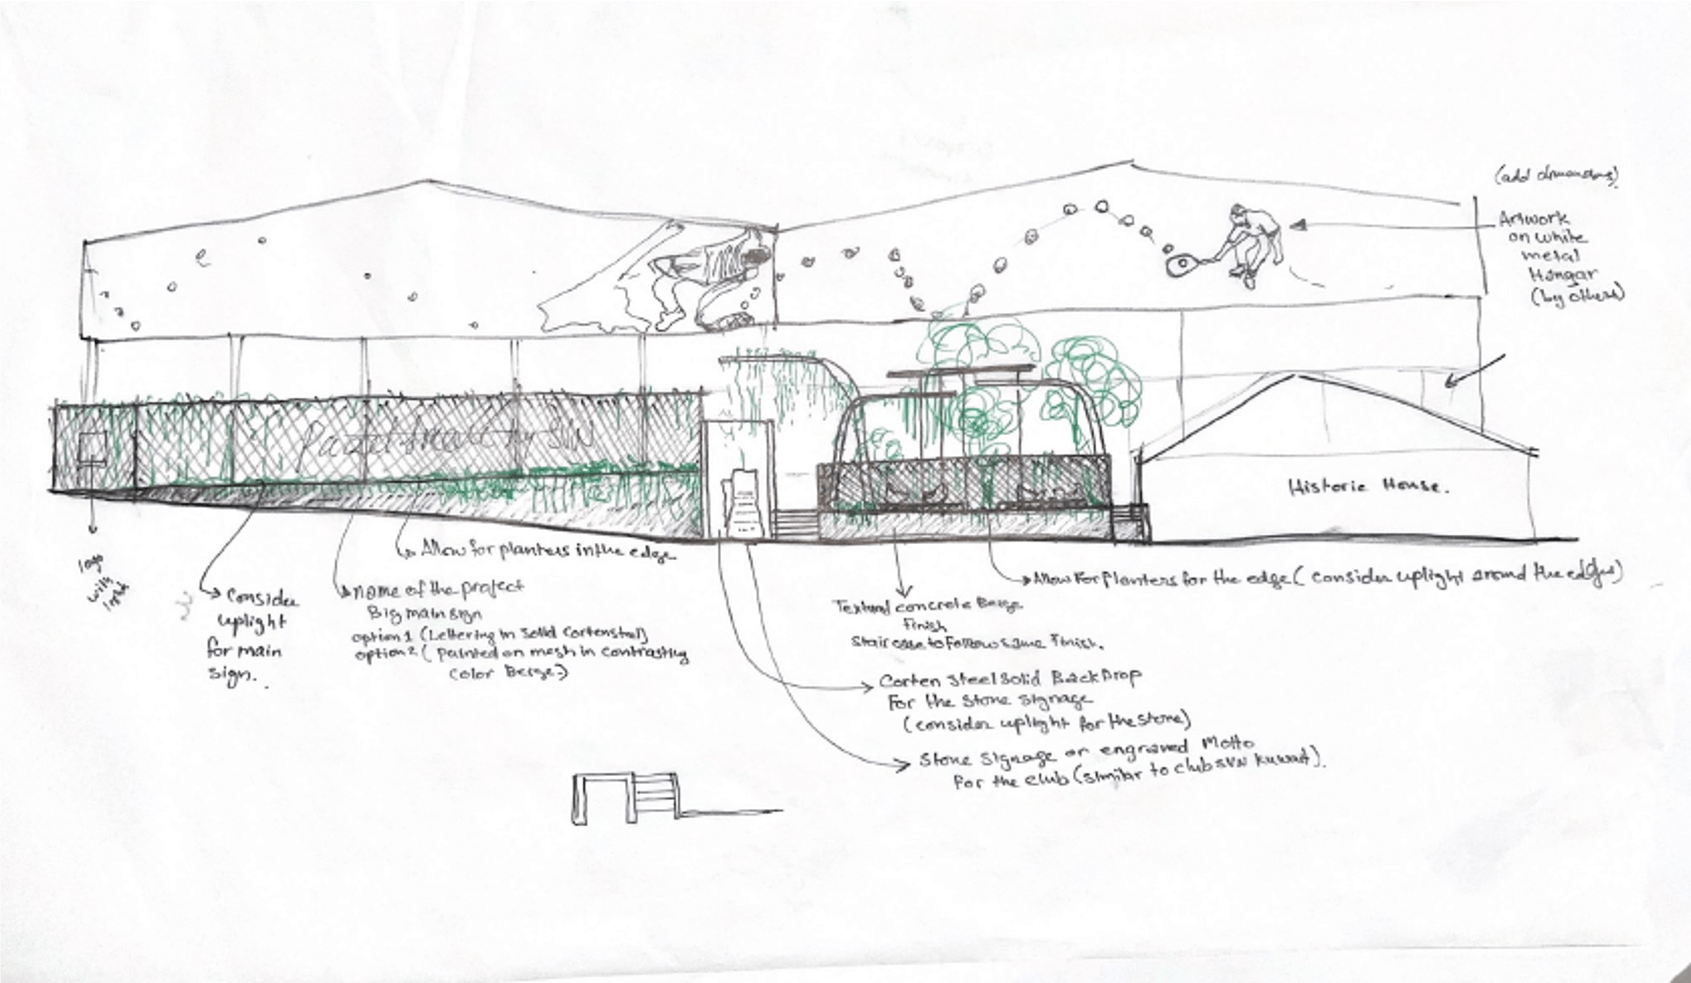 (add dimensions)
Artwork
on white
metal
Hangar
(by others)
Padel
by SVN
Historic House.
logo
with
Allow for planters in the edge
name of the project
Big main sign
option 1 (Lettering in Solid Cortensteel)
option 2 (painted on mesh in contrasting
color Berge)
Consider
uplight
for main
sign.
Allow for planters for the edge (consider uplight around the edges)
Textured concrete Berge
Finish
Staircase to Follow same Finish.
Corten Steel Solid BackDrop
For the Stone Signage
(consider uplight for the stone)
Stone Signage or engraved Motto
for the club (similar to club SVN Kuwait).